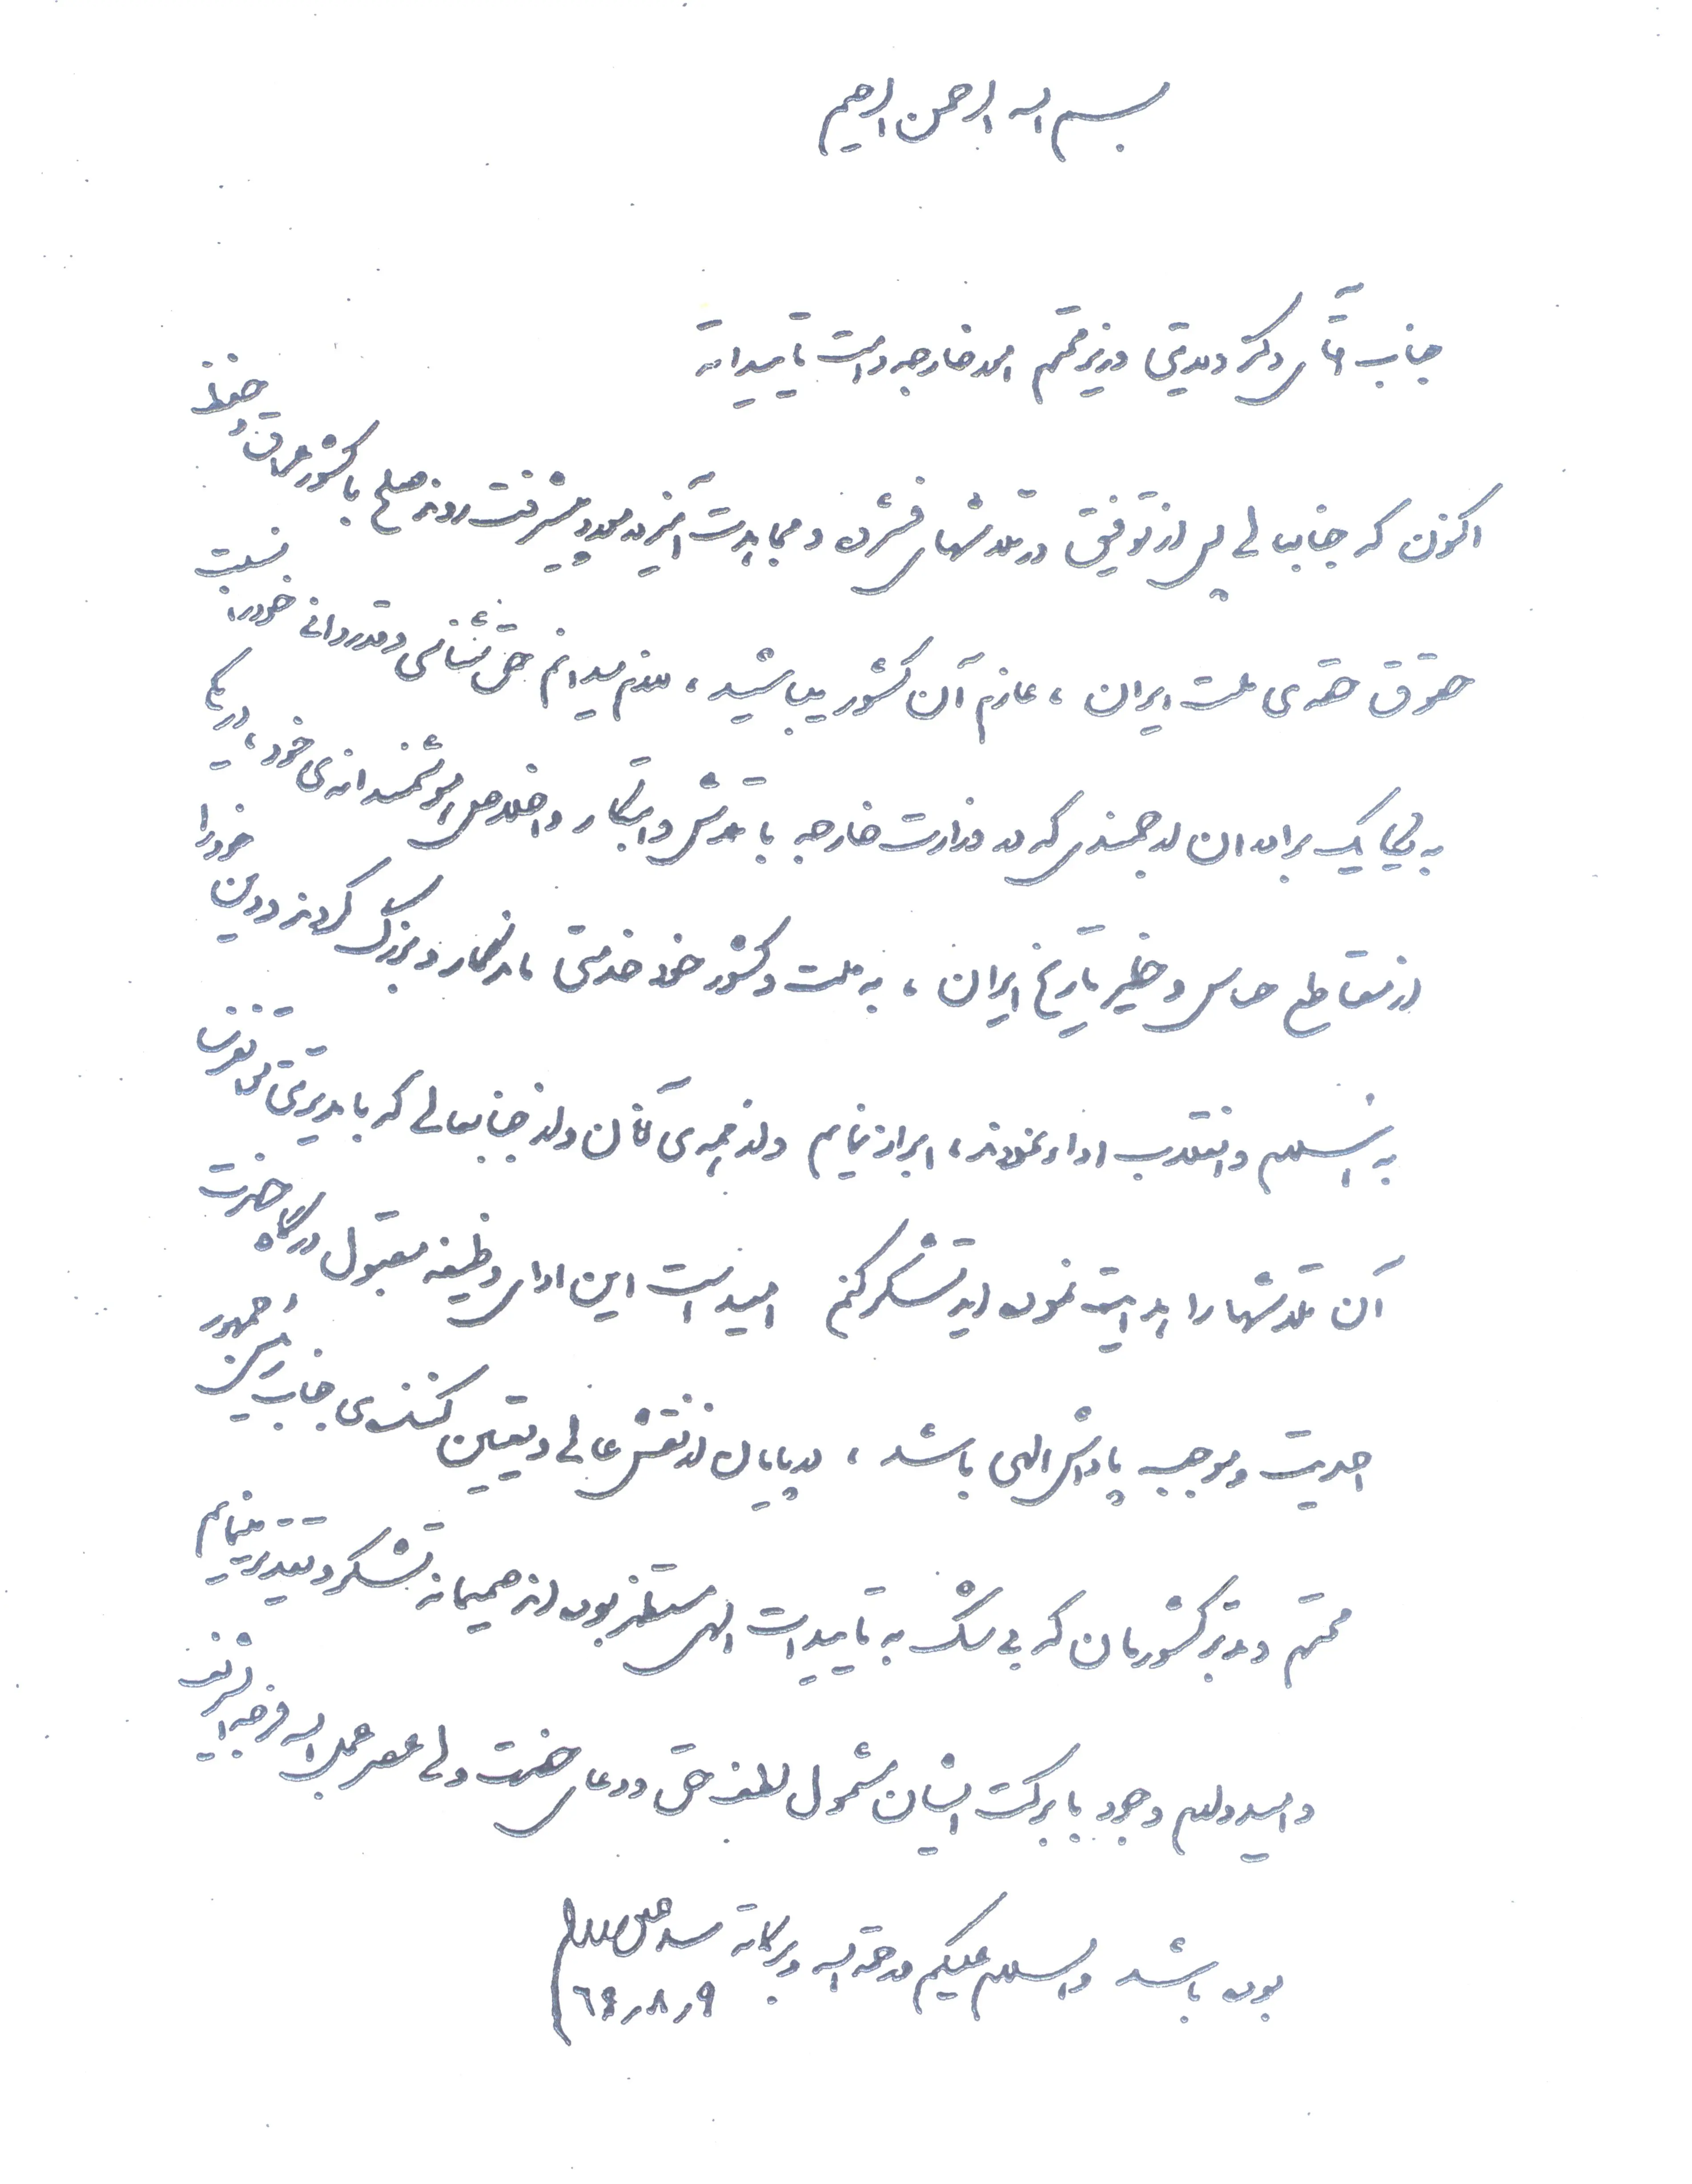 بسم الله الرحمن الرحیم
جناب آقای دکتر ولایتی وزیر محترم امور خارجه دامت تأییداته
اکنون که جنابعالی پس از توفیق در تلاشهای فشرده و مجاهدت آمیز در مورد پیشرفت روند صلح با کشور عراق و حفظ
حقوق حقه‌ی ملت ایران ، عازم آن کشور میباشید ، لازم میدانم حق شناسی و قدردانی خود را نسبت
به یکایک برادران ارجمندی که در وزارت خارجه با تلاش و ابتکار و اخلاص هوشمندانه‌ی خود ، در یکی
از مقاطع حساس و خطیر تاریخ ایران ، به ملت و کشور خود خدمتی ماندگار و بزرگ کردند و دین خود را
به اسلام و انقلاب اداء نمودند ، ابراز نمایم و از همه‌ی آنان و از جنابعالی که با مدیریتی
آن تلاشها را هدایت نموده اید تشکر کنم امید است این ادای وظیفه مقبول درگاه حضرت
احدیت و موجب پاداش الهی باشد ، در پایان از نقش عالی و تعیین کننده‌ی جناب رئیس جمهور
محترم و مدبر کشورمان که بی شک به تأییدات الهی مستظهر بوده اند صمیمانه تشکر و تقدیر مینمایم
و امیدوارم وجود با برکت ایشان مشمول لطف حق و دعای حضرت ولی عصر عجل الله فرجه الشریف
بوده باشد والسلام علیکم و رحمة الله و برکاته سید علی خامنه‌ای
۶۹٫۸٫۹